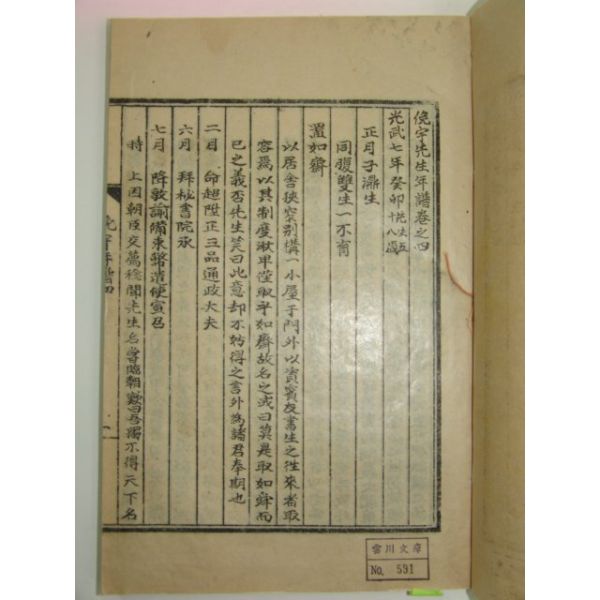 俛宇先生年譜卷之四
光武七年癸卯先生五十八歲
正月子㶏生
同腹雙生一不育
置如齋
以居舍狹窄別構一小屋于門外以資賓友書生之往來者取
容焉以其制度湫卑僅取乎如齋故名之或曰莫是取如舜而
已之義否先生笑曰此意却不妨得之言外爲諸君奉期也
二月 命超陞正三品通政大夫
六月 拜秘書院丞
七月 降敦諭備東幣遣使宣召
時 上因朝臣交薦稔聞先生名嘗臨朝歎曰吾獨不得天下名
俛宇年譜四
一
雲川文庫
No. 591